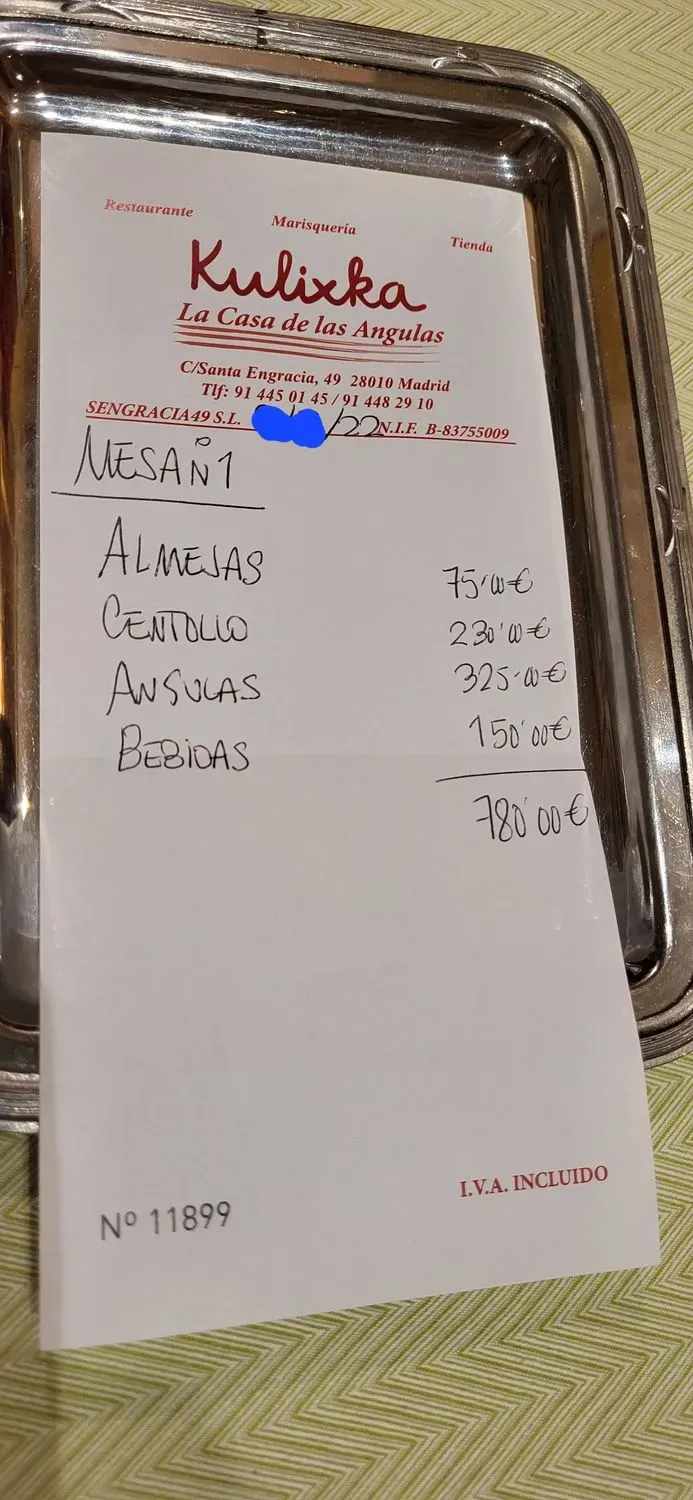 Restaurante Marisquería Tienda
Kulixka
La Casa de las Angulas
C/Santa Engracia, 49 28010 Madrid
Tlf: 91 445 01 45 / 91 448 29 10
SENGRACIA49 S.L. /22 N.I.F. B-83755009
MESA Nº 1
ALMEJAS 75'00€
CENTOLLO 230'00€
ANGULAS 325'00€
BEBIDAS 150'00€
780'00€
I.V.A. INCLUIDO
Nº 11899